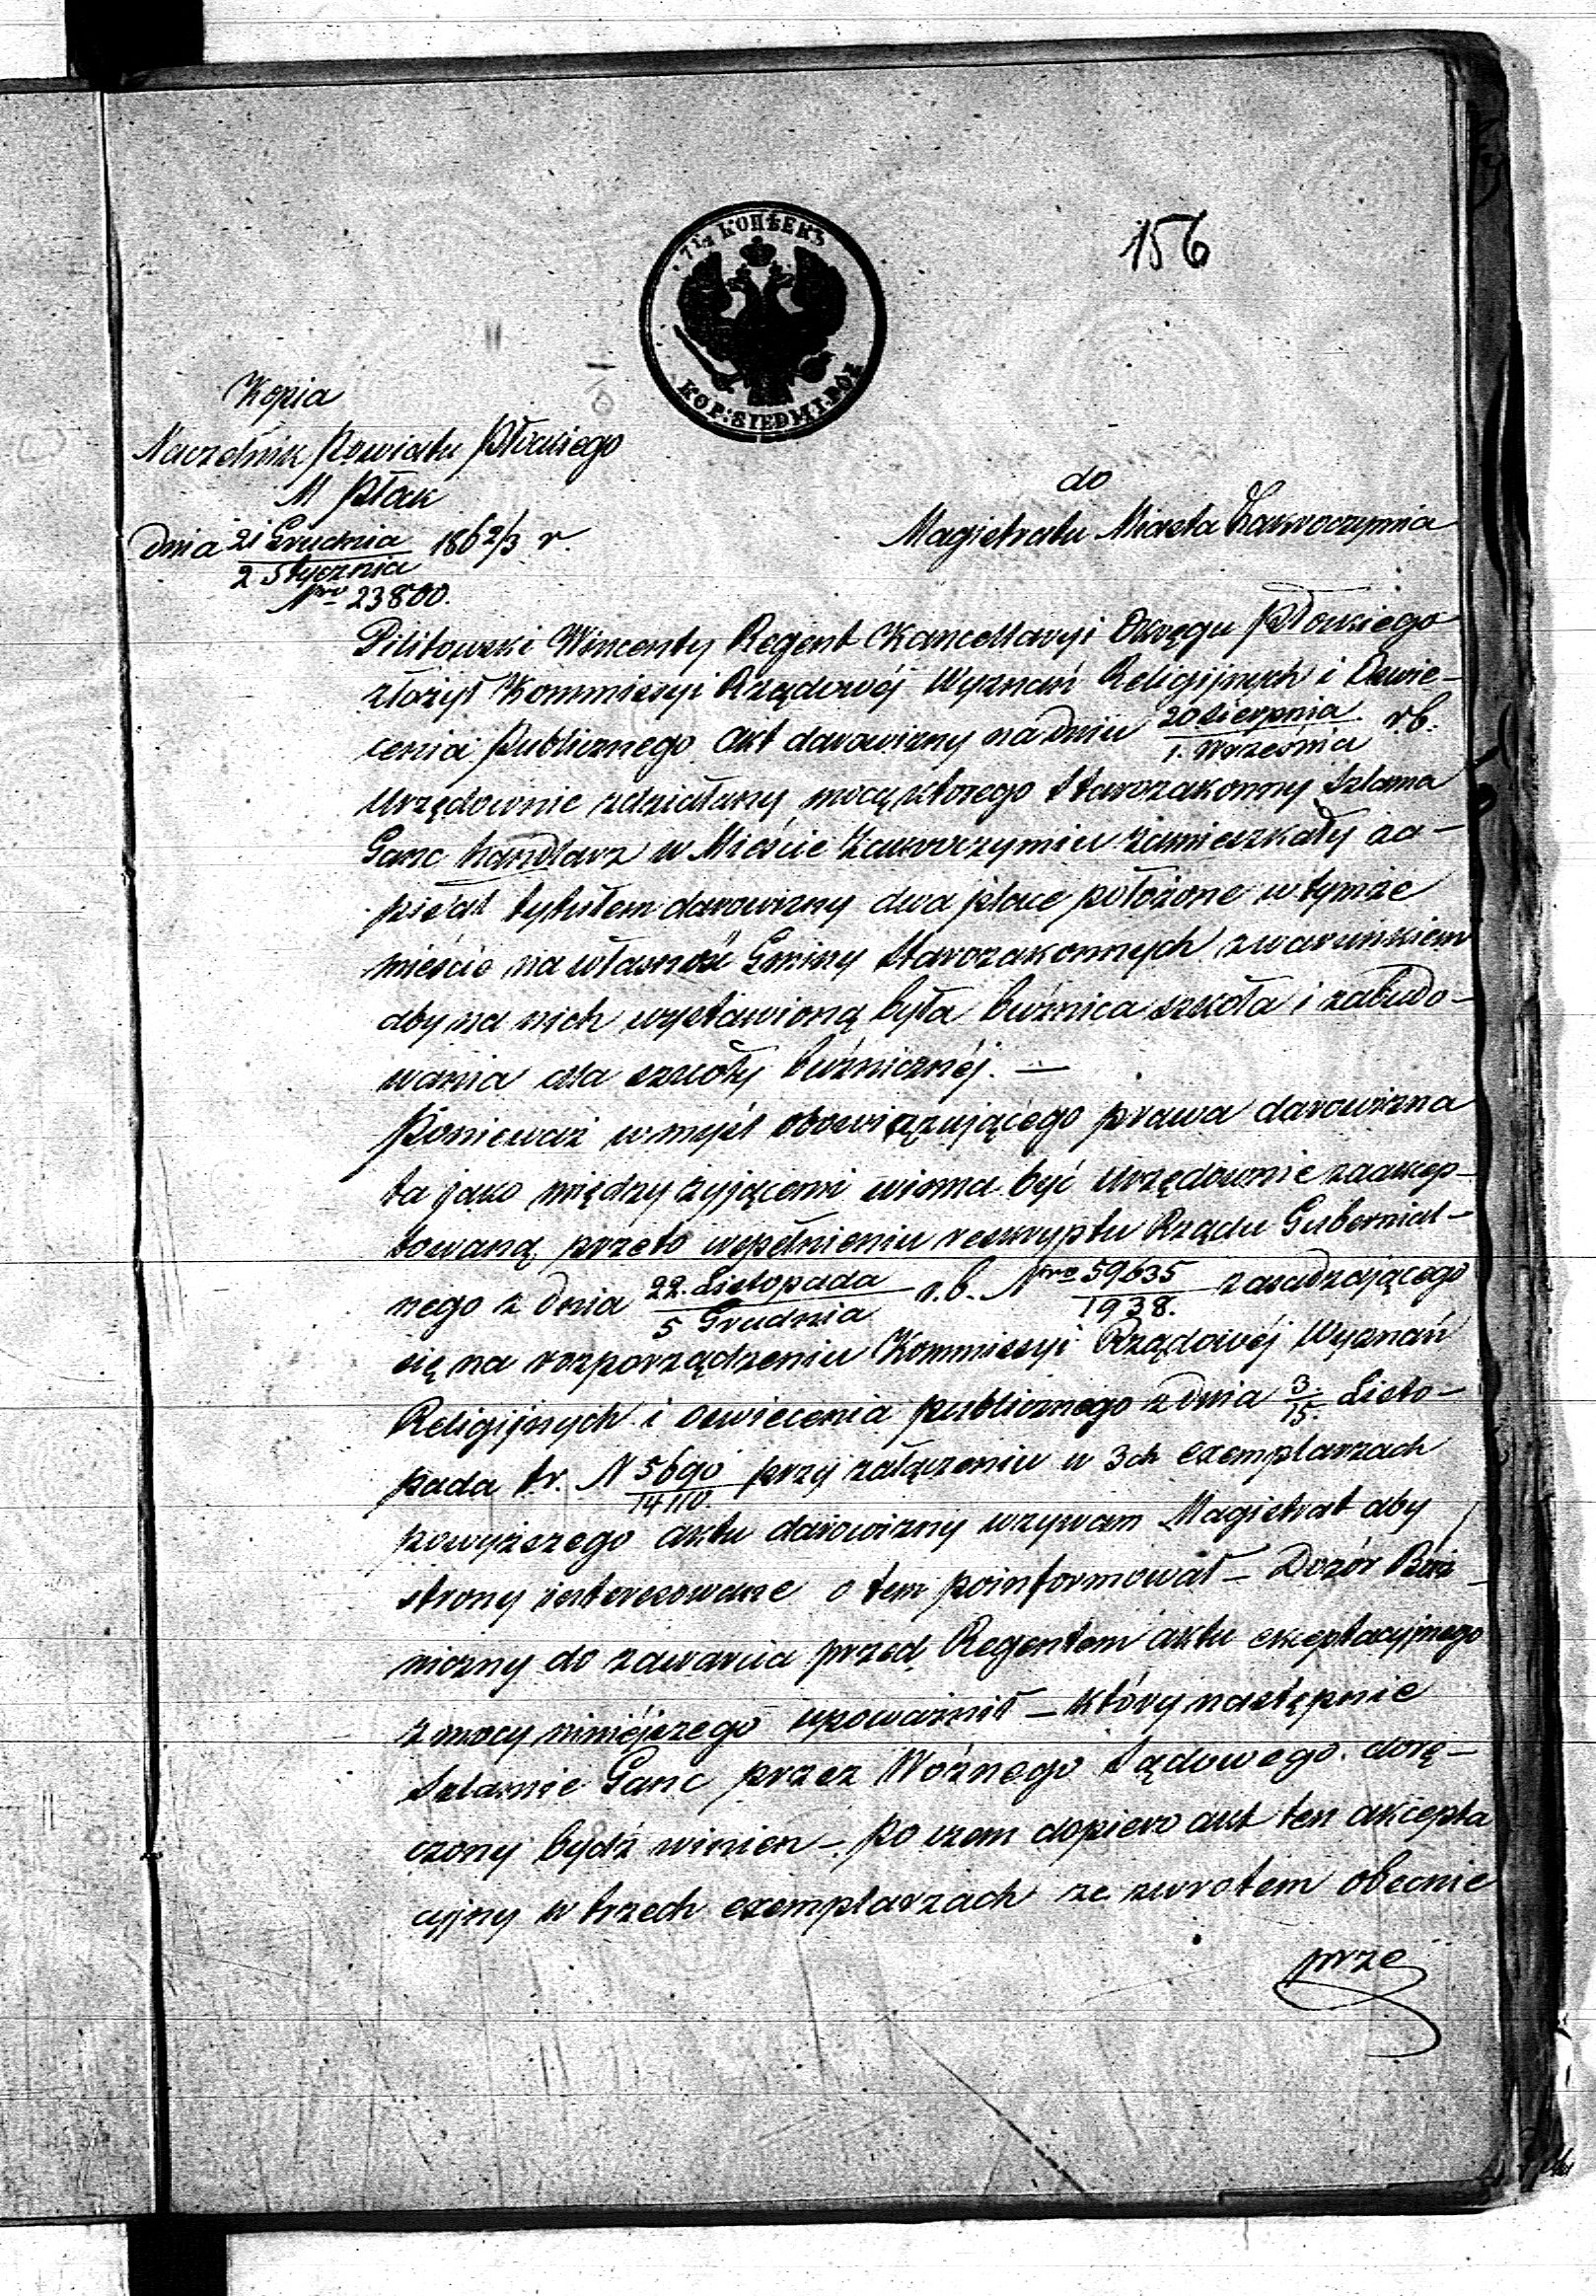 156
7½ КОПѢЕКЪ
KOP: SIEDM I PÓŁ
Kopia
Naczelnik Powiatu Płockiego
M Płock
do
Magistratu Miasta Zakroczymia
dnia 21 Grudnia / 2 Stycznia 1862/3 r.
Nro 23800.
Pilitowski Wincenty Regent Kancellaryi Okręgu Płockiego
złożył Kommissyi Rządowéj Wyznań Religijnych i Oświe-
cenia Publicznego Akt darowizny na dniu 20 Sierpnia / 1. Września r.b.
urzędownie zdziałany mocą którego Starozakonny Szlama
Ganc handlarz w Mieście Zakroczymiu zamieszkały za-
pisał tytułem darowizny dwa place położone w tymże
mieście na własność Gminy Starozakonnych z warunkiem
aby na nich wystawioną była bóżnica szkoła i zabudo-
wania dla szkoły bóżnicznéj. —
Ponieważ w myśl obowiązującego prawa darowizna
ta jako między żyjącemi winna być urzędownie zaakcep-
towaną, przeto wypełnieniu reskryptu Rządu Gubernial-
nego z dnia 22. Listopada / 5 Grudnia r.b. Nro 59635 / 1938. zasadzającego
się na rozporządzeniu Kommissyi Rządowéj Wyznań
Religijnych i Oświecenia publicznego z dnia 3. / 15. Listo-
pada t.r. N 5690 / 14110. przy załączeniu w 3ch exemplarzach
powyższego aktu darowizny wzywam Magistrat aby
strony interesowane o tem poinformował — Dozór Bóż-
niczny do zawarcia przed Regentem aktu akceptacyjnego
z mocy niniéjszego upoważnił — który następnie
Szlamie Ganc przez Woźnego Sądowego dorę-
czony bydź winien — po czem dopiero akt ten akcepta
cyjny w trzech exemplarzach ze zwrotem obecnie
prze